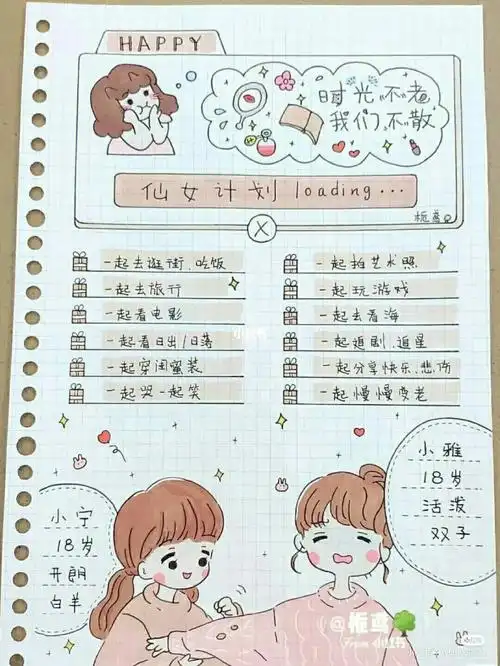 HAPPY
时光不老
我们不散
仙女计划loading...
栀鸢
一起去逛街、吃饭
一起去旅行
一起看电影
一起看日出/日落
一起穿闺蜜装
一起哭一起笑
一起拍艺术照
一起玩游戏
一起去看海
一起追剧、追星
一起分享快乐、悲伤
一起慢慢变老
小宁
18岁
开朗
白羊
小雅
18岁
活泼
双子
@栀鸢
From 小红书